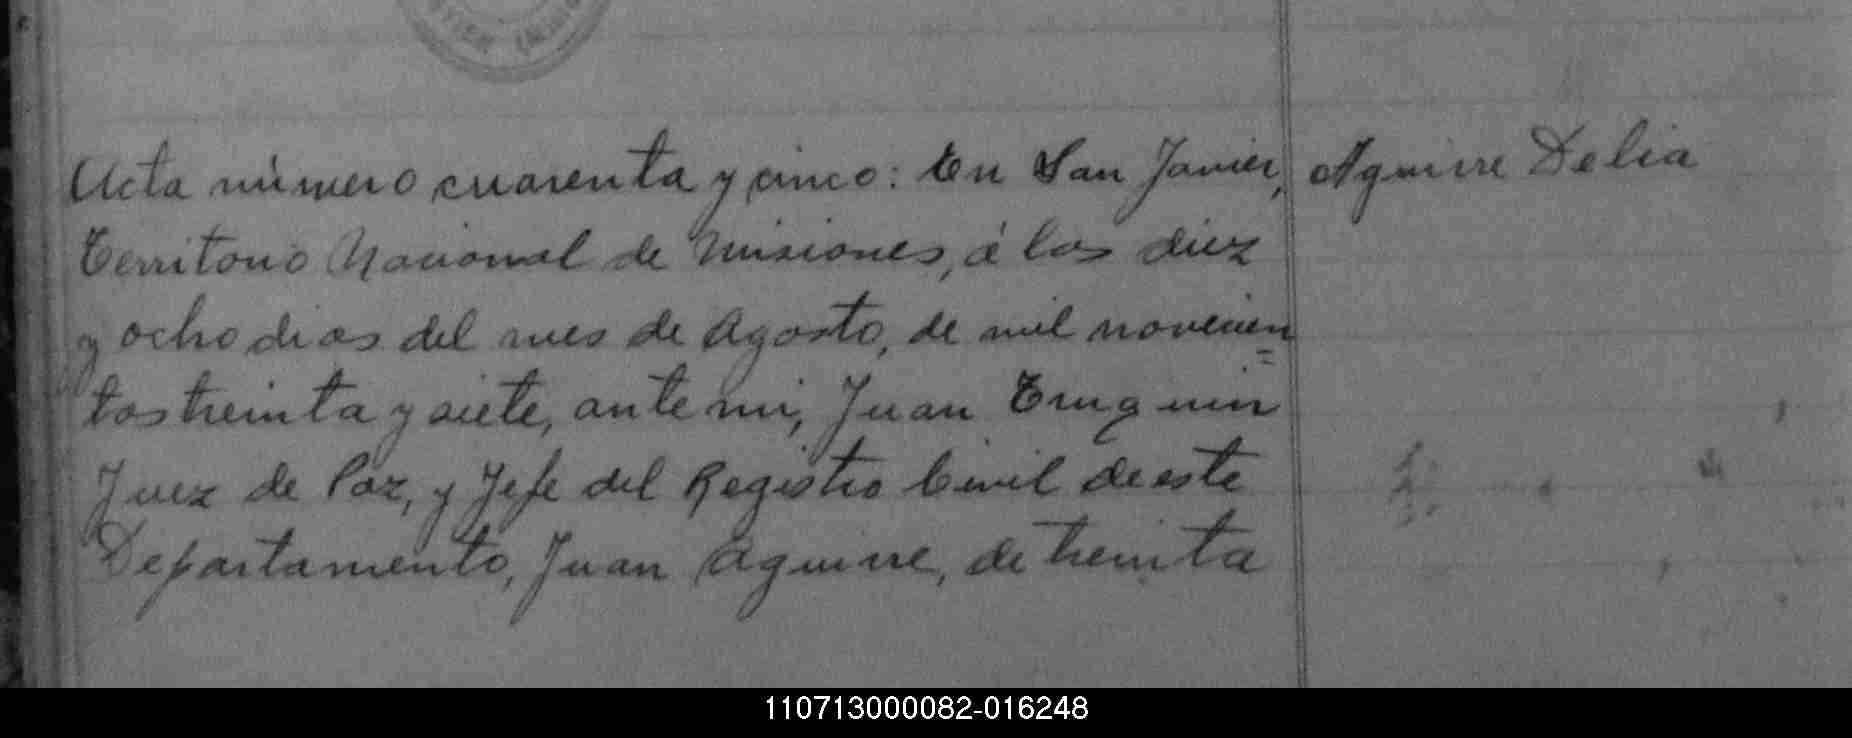 Acta número cuarenta y cinco: En San Javier,
Aguirre Delia
Territorio Nacional de Misiones, á los diez
y ocho dias del mes de Agosto, de mil novecien=
tos treinta y siete, ante mi, Juan
Juez de Paz, y Jefe del Registro Civil de este
Departamento, Juan Aguirre, de treinta
110713000082-016248